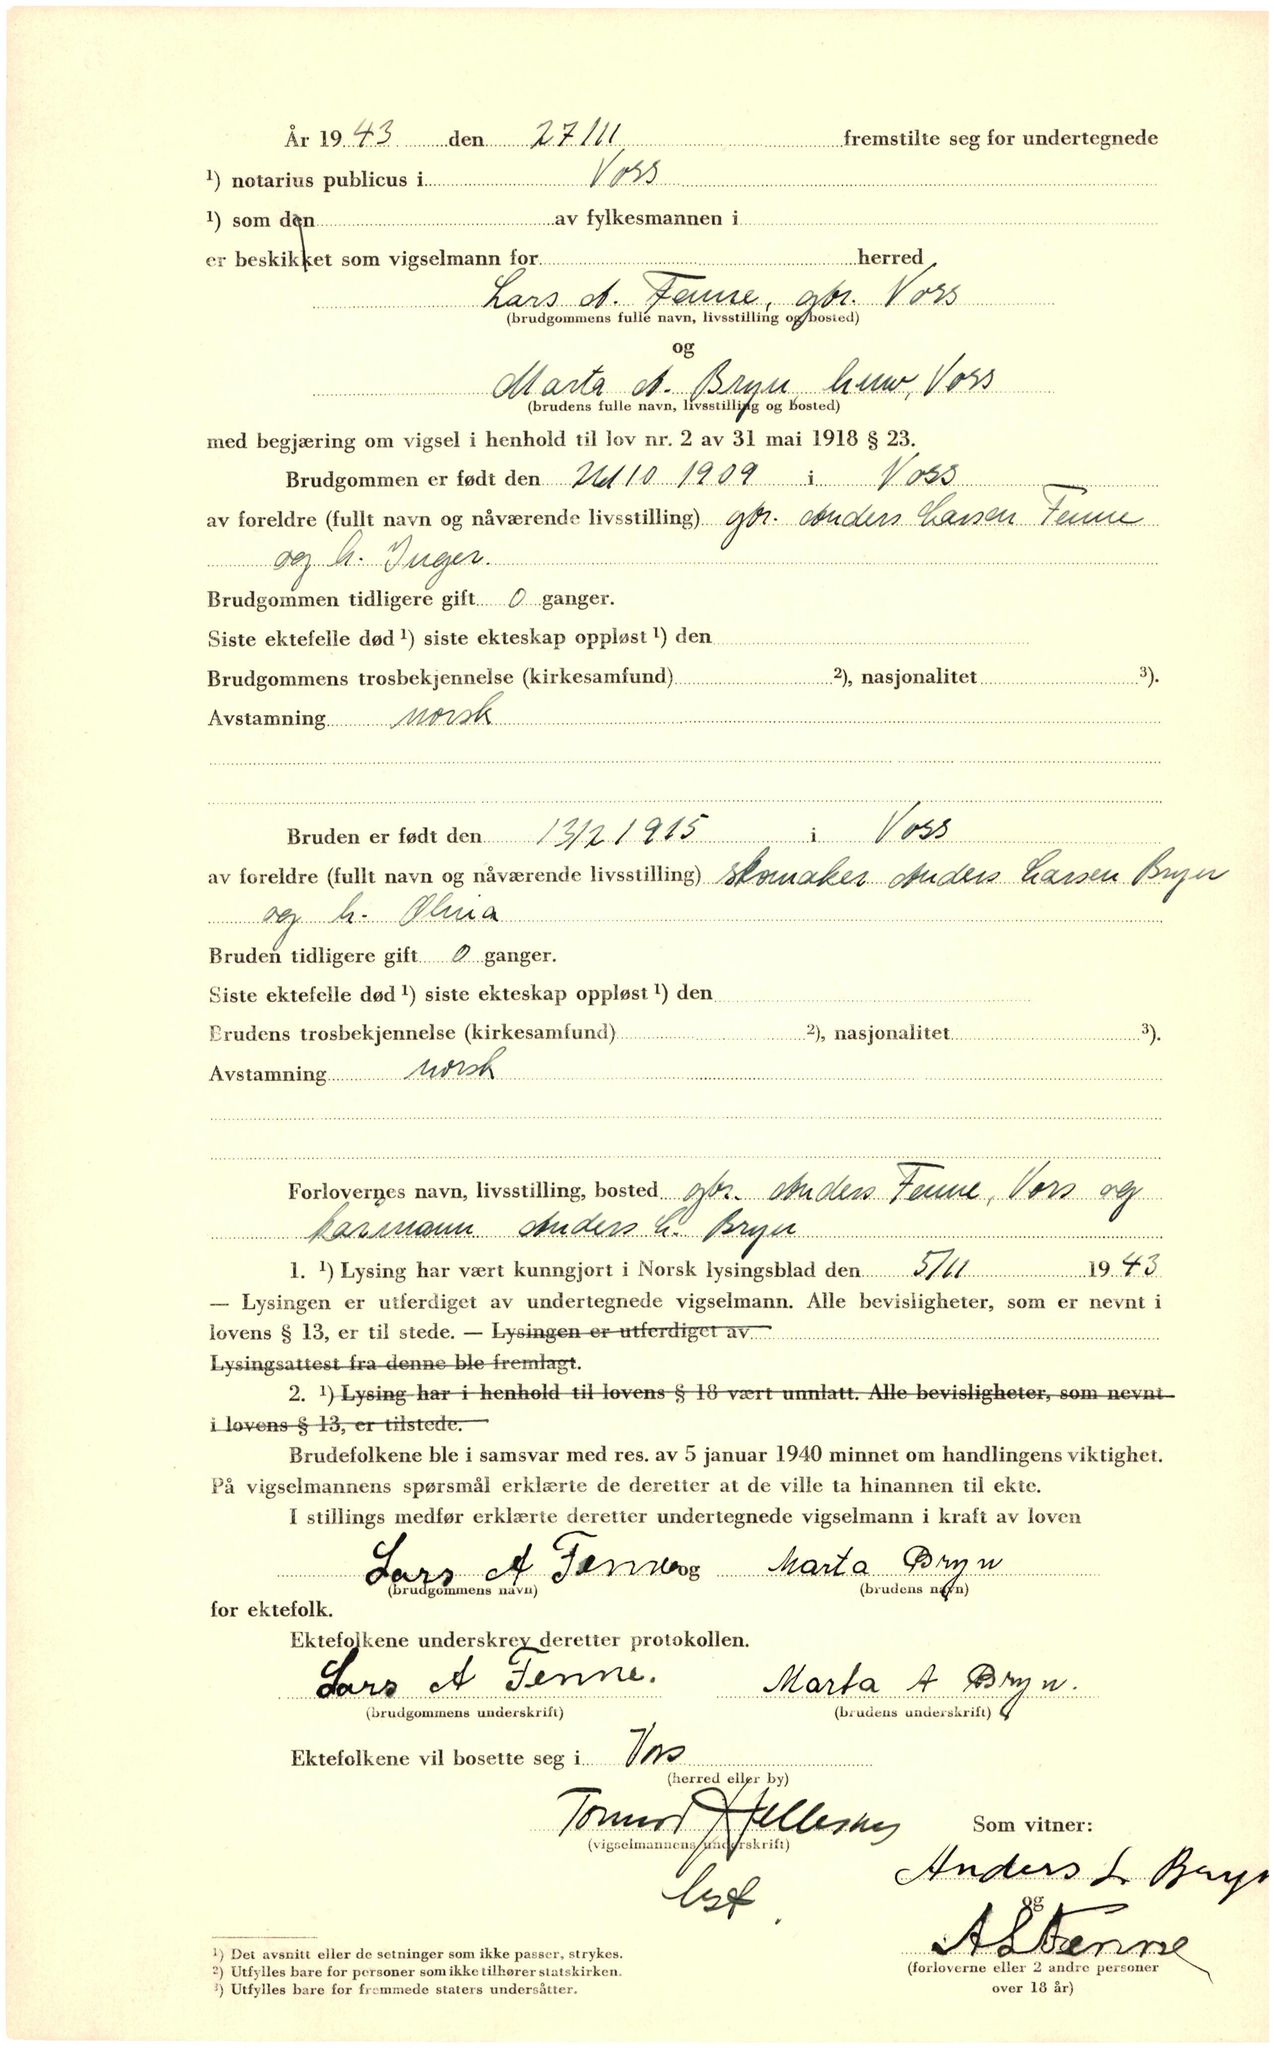 År 1943 den 27/III fremstilte seg for undertegnede
¹) notarius publicus i Voss
¹) som den av fylkesmannen i
er beskikket som vigselmann for herred
Lars A. Fenne, gbr. Voss
(brudgommens fulle navn, livsstilling og bosted)
og
Marta A. Bryn, Voss
(brudens fulle navn, livsstilling og bosted)
med begjæring om vigsel i henhold til lov nr. 2 av 31 mai 1918 § 23.
Brudgommen er født den 10 1909 i Voss
av foreldre (fullt navn og nåværende livsstilling) gbr. Anders Larsen Fenne
og h. Inger.
Brudgommen tidligere gift 0 ganger.
Siste ektefelle død ¹) siste ekteskap oppløst ¹) den
Brudgommens trosbekjennelse (kirkesamfund) ²), nasjonalitet ³).
Avstamning norsk
Bruden er født den 13/2 1915 i Voss
av foreldre (fullt navn og nåværende livsstilling) skomaker Anders Larsen Bryn
og h. Olina
Bruden tidligere gift 0 ganger.
Siste ektefelle død ¹) siste ekteskap oppløst ¹) den
Brudens trosbekjennelse (kirkesamfund) ²), nasjonalitet ³).
Avstamning norsk
Forlovernes navn, livsstilling, bosted gbr. Anders Fenne, Voss og
Anders L. Bryn
1. ¹) Lysing har vært kunngjort i Norsk lysingsblad den 5/II 1943
— Lysingen er utferdiget av undertegnede vigselmann. Alle bevisligheter, som er nevnt i
lovens § 13, er til stede. — Lysingen er utferdiget av
Lysingsattest fra denne ble fremlagt.
2. ¹) Lysing har i henhold til lovens § 18 vært unnlatt. Alle bevisligheter, som nevnt
i lovens § 13, er tilstede.
Brudefolkene ble i samsvar med res. av 5 januar 1940 minnet om handlingens viktighet.
På vigselmannens spørsmål erklærte de deretter at de ville ta hinannen til ekte.
I stillings medfør erklærte deretter undertegnede vigselmann i kraft av loven
Lars A Fenne og Marta Bryn
(brudgommens navn) (brudens navn)
for ektefolk.
Ektefolkene underskrev deretter protokollen.
Lars A Fenne. Marta A Bryn.
(brudgommens underskrift) (brudens underskrift)
Ektefolkene vil bosette seg i Voss
(herred eller by)
Som vitner:
(vigselmannens underskrift)
Anders L Bryn
og
A L Fenne
(forloverne eller 2 andre personer
over 18 år)
¹) Det avsnitt eller de setninger som ikke passer, strykes.
²) Utfylles bare for personer som ikke tilhører statskirken.
³) Utfylles bare for fremmede staters undersåtter.